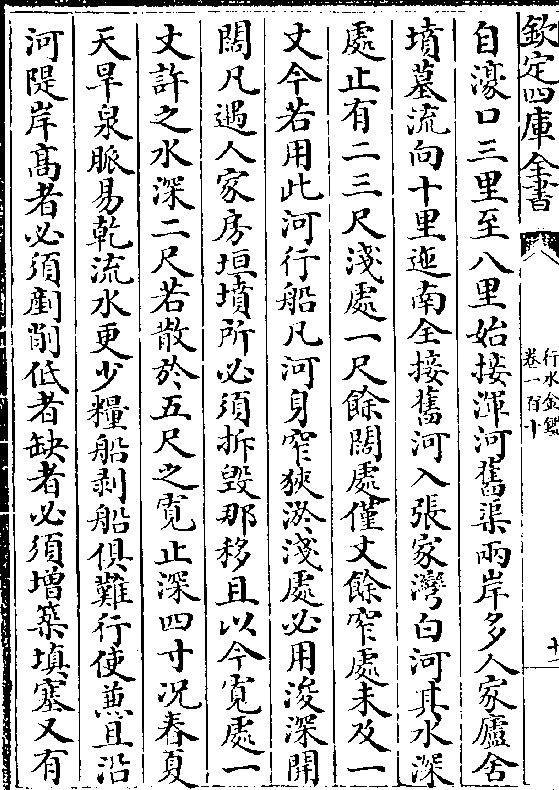 欽定四庫全書
行水金鑑
卷一百十
十一
自濠口三里至八里始接渾河舊渠兩岸多人家廬舍
墳墓流向十里迤南全接舊河入張家灣白河其水深
處止有二三尺淺處一尺餘闊處僅丈餘窄處未及一
丈今若用此河行船凡河身窄狹淤淺處必用浚深開
闊凡遇人家房垣墳所必須拆毀那移且以今寛處一
丈許之水深二尺若散於五尺之寛止深四寸况春夏
天旱泉脈易乾流水更少糧船剥船俱難行使兼且沿
河隄岸高者必須剷削低者缺者必須增築填塞又有